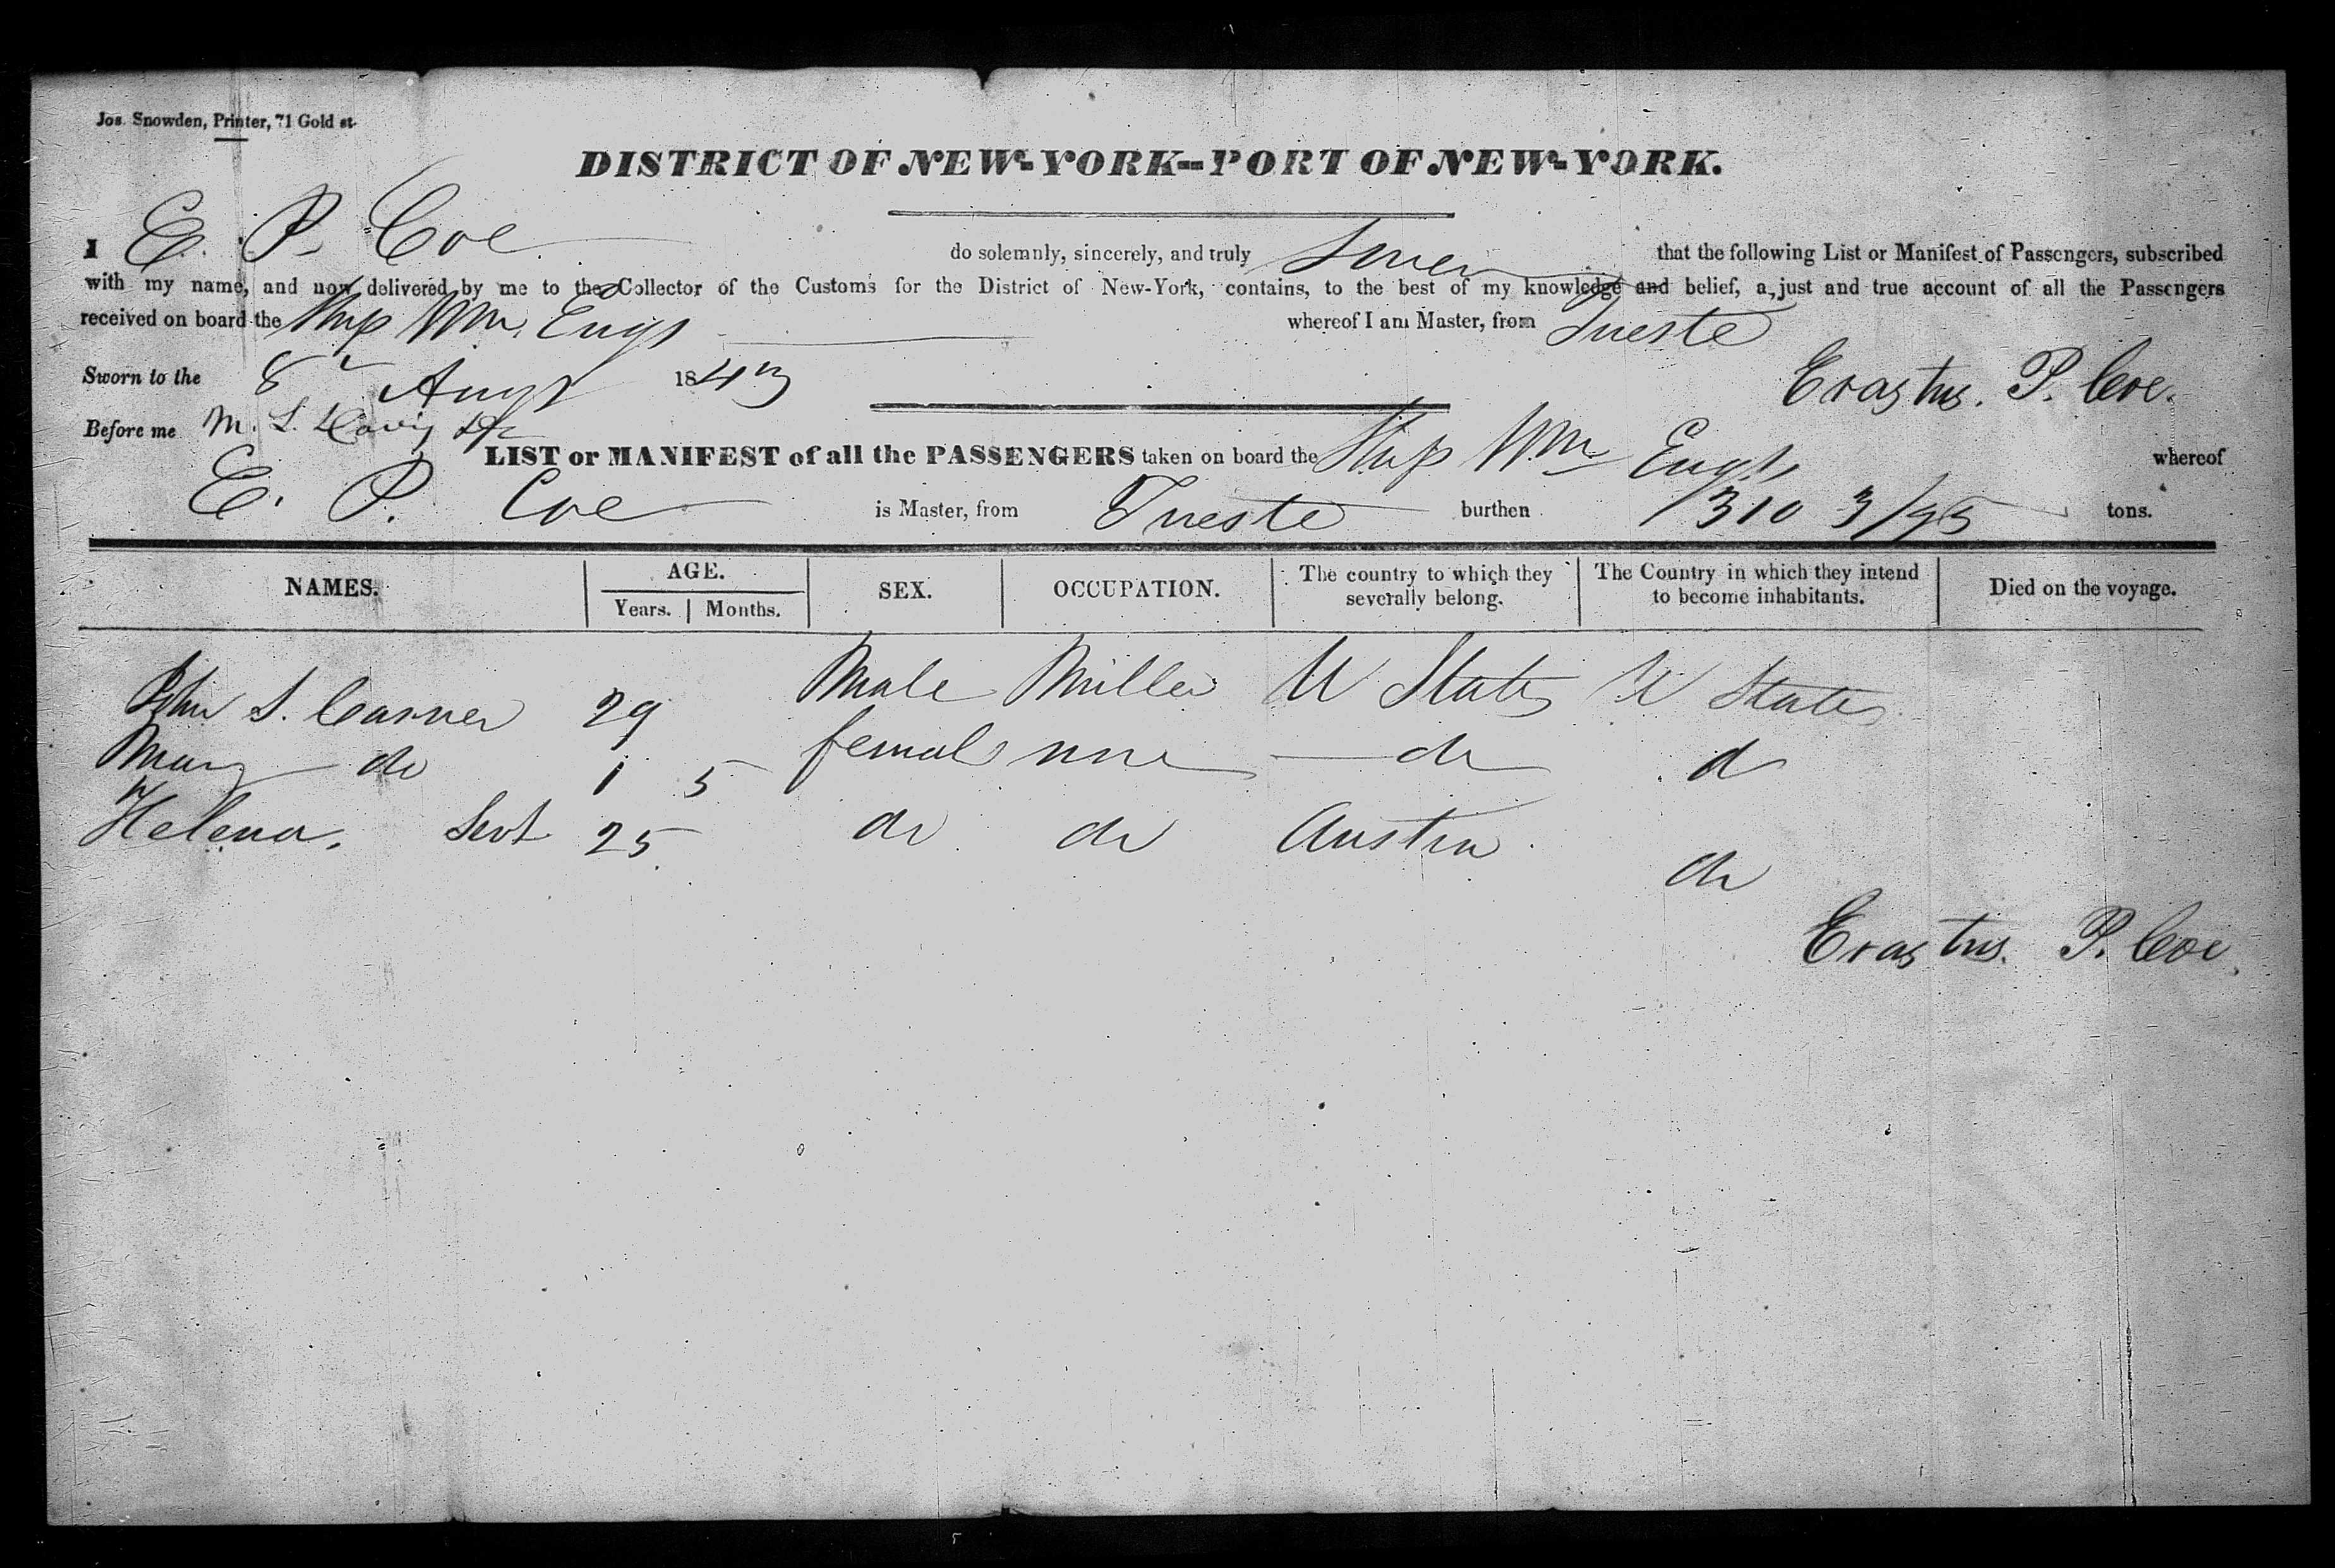 Jos. Snowden, Printer, 71 Gold st.
DISTRICT OF NEW-YORK--PORT OF NEW-YORK.
I E. P. Coe do solemnly, sincerely, and truly Swear that the following List or Manifest of Passengers, subscribed
with my name, and now delivered by me to the Collector of the Customs for the District of New-York, contains, to the best of my knowledge and belief, a just and true account of all the Passengers
received on board the Ship Wm. Engs whereof I am Master, from Trieste
Sworn to the 8 Augt 1843 Erastus. P. Coe.
Before me M. L. Davis
LIST or MANIFEST of all the PASSENGERS taken on board the Ship Wm Engs whereof
E. P. Coe is Master, from Trieste burthen 310 3/95 tons.
NAMES. AGE. SEX. OCCUPATION. The country to which they severally belong. The Country in which they intend to become inhabitants. Died on the voyage.
Years. Months.
John S. Carner 29 Male Miller U States U States
Mary do 1 5 female none do do
Helena, Servt 25 do do Austria do
Erastus. P. Coe.